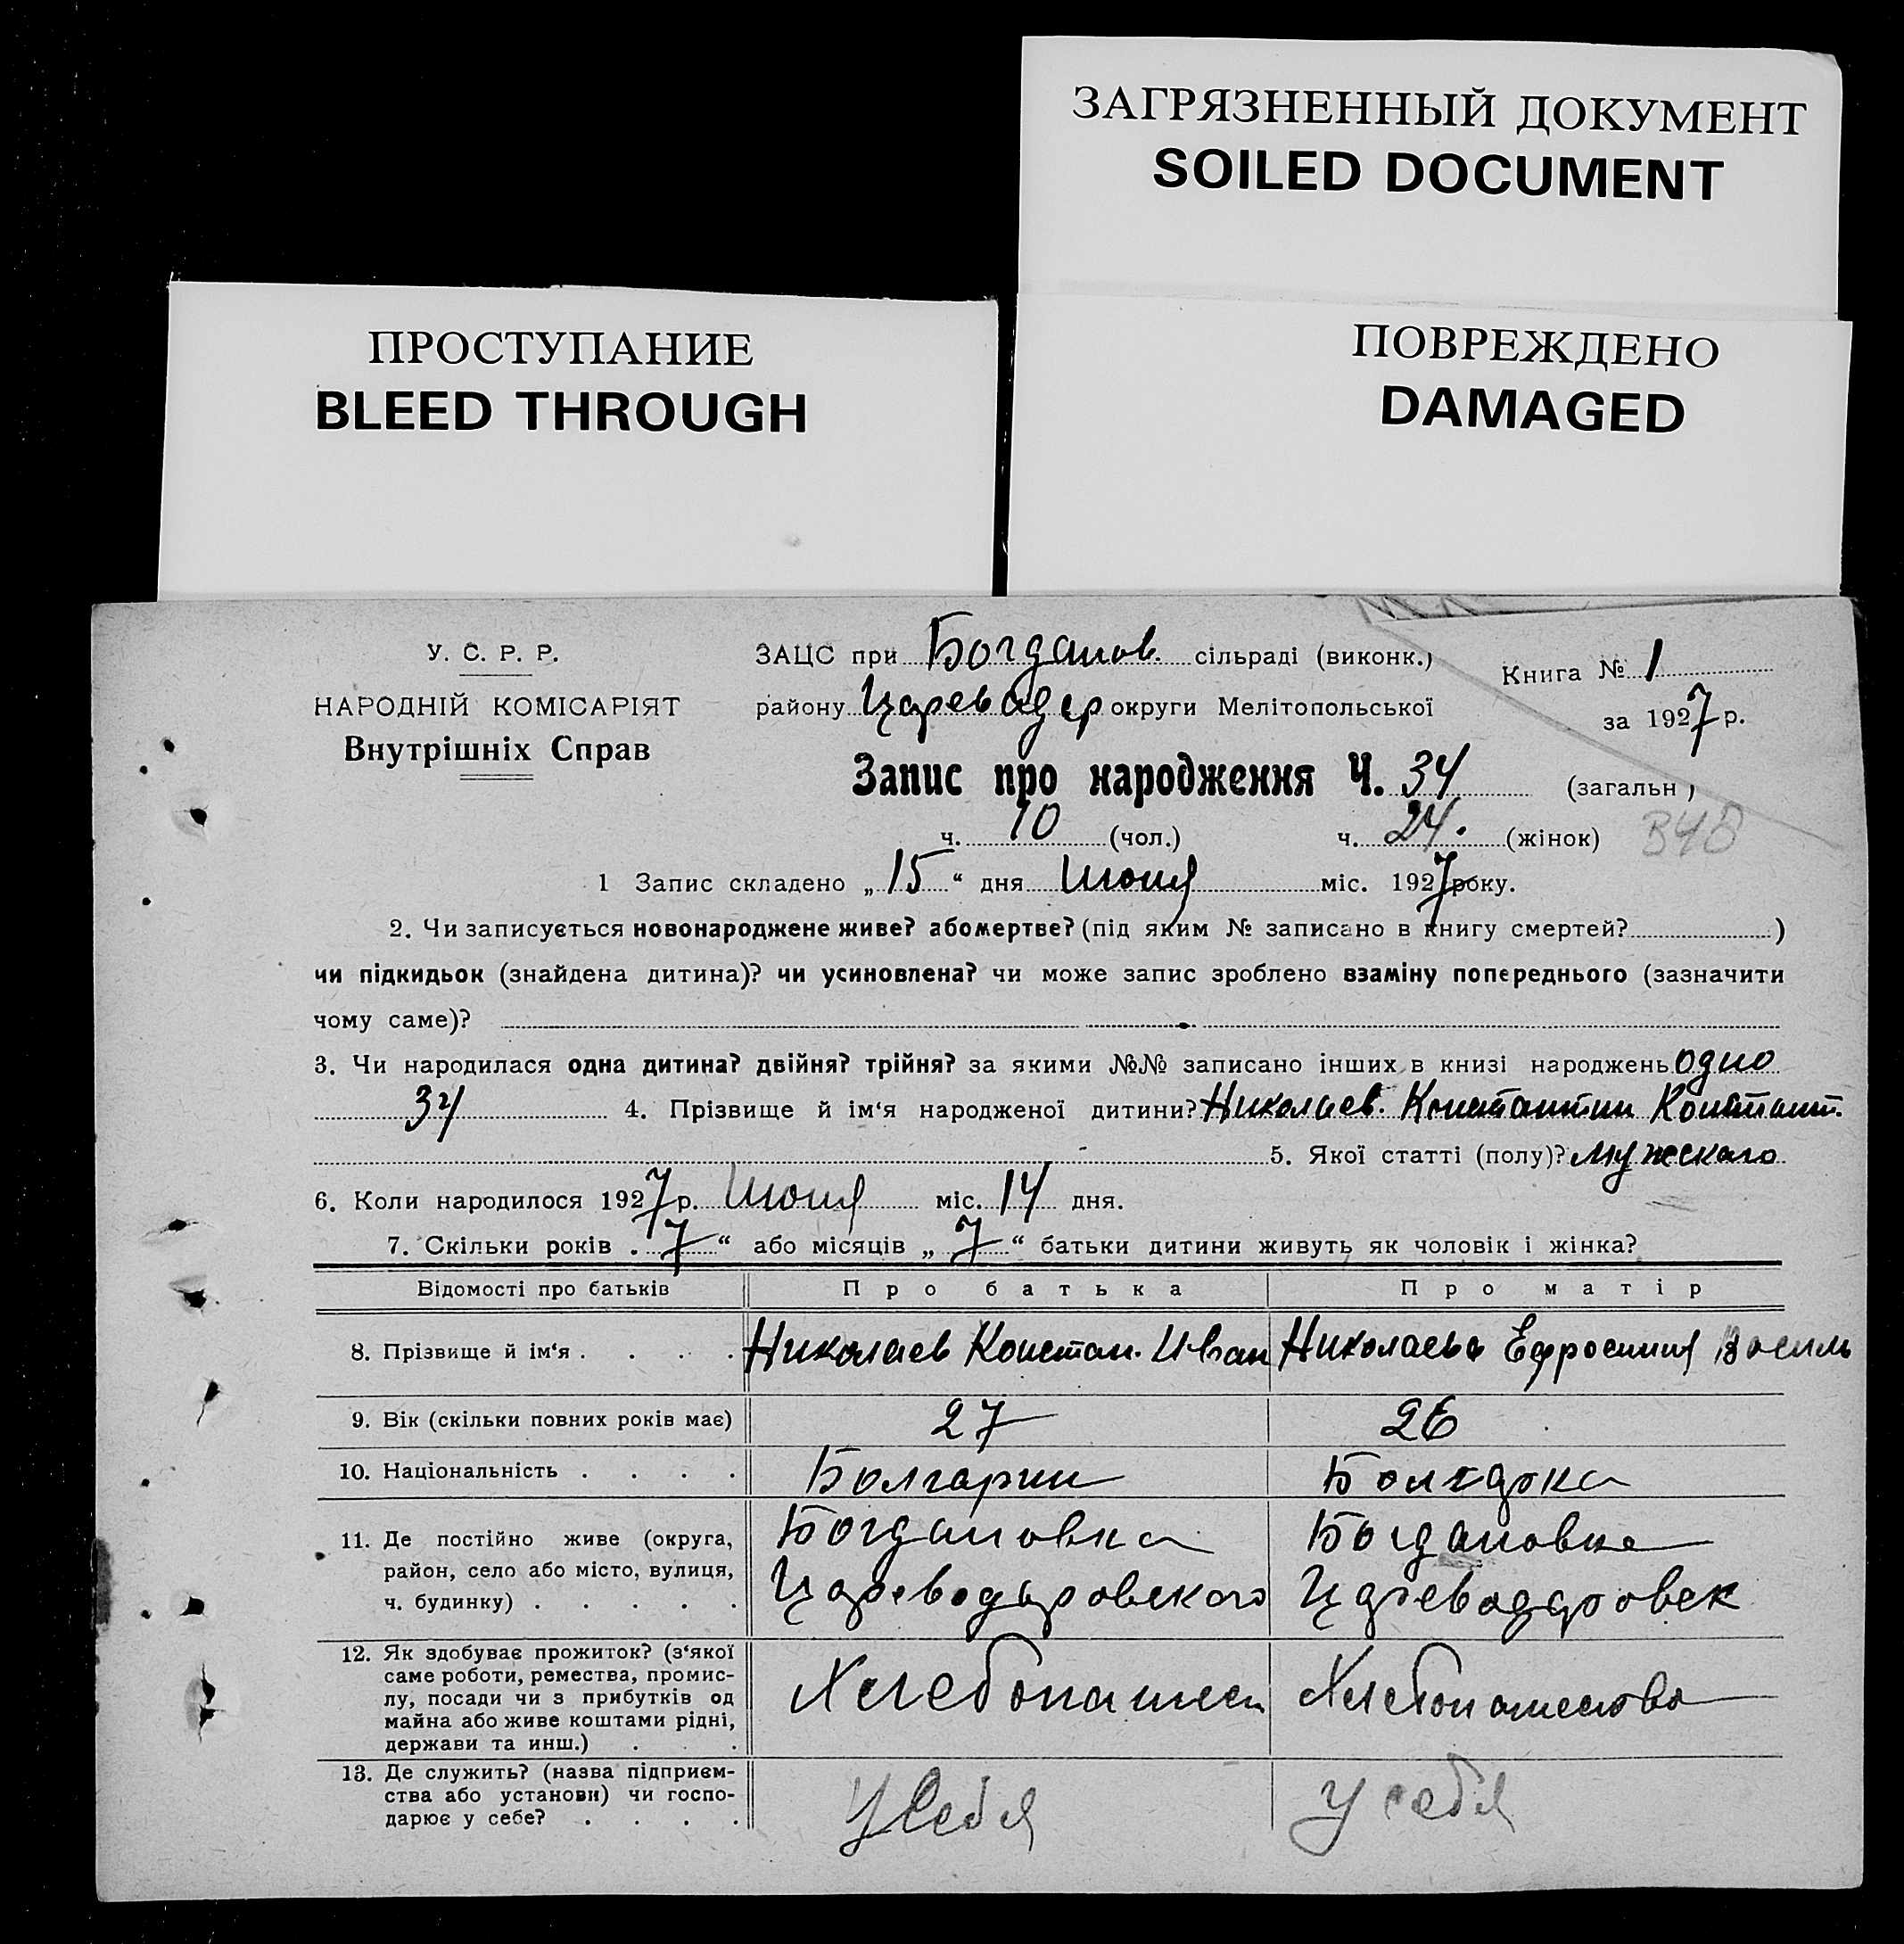 ЗАГРЯЗНЕННЫЙ ДОКУМЕНТ
SOILED DOCUMENT
ПРОСТУПАНИЕ
BLEED THROUGH
ПОВРЕЖДЕНО
DAMAGED
У. С. Р. Р.
НАРОДНІЙ КОМІСАРІЯТ
Внутрішніх Справ
ЗАЦС при Богданов. сільраді (виконк.)
району Царевадар округи Мелітопольської
Книга № 1
за 1927 р.
Запис про народження Ч. 34 (загальн)
ч. 10 (чол.) ч. 24. (жінок)
1 Запис складено „15“ дня Июня міс. 1927 року.
2. Чи записується новонароджене живе? або мертве? (під яким № записано в книгу смертей? )
чи підкидьок (знайдена дитина)? чи усиновлена? чи може запис зроблено взаміну попереднього (зазначити
чому саме)?
3. Чи народилася одна дитина? двійня? трійня? за якими №№ записано інших в книзі народжень одно
34 4. Прізвище й ім‘я народженої дитини? Николаев. Константин Констант.
5. Якої статті (полу)? мужескаго
6. Коли народилося 1927 р. Июня міс. 14 дня.
7. Скільки років „7“ або місяців „7“ батьки дитини живуть як чоловік і жінка?
Відомості про батьків Про батька Про матір
8. Прізвище й ім‘я . . . . Николаев Констан. Иван Николаева Ефросиния Василь
9. Вік (скільки повних років має) 27 26
10. Національність . . . . Болгарин Болгарка
11. Де постійно живе (округа,
район, село або місто, вулиця,
ч. будинку) . . . . .
Богдановка
Цареводаровского
Богдановка
Цареводаровск
12. Як здобуває прожиток? (з‘якої
саме роботи, ремества, промис-
лу, посади чи з прибутків од
майна або живе коштами рідні,
держави та инш.) . . .
Хлебопашест
Хлебопашество
13. Де служить? (назва підприєм-
ства або установи) чи госпо-
дарює у себе? . . . .
у себя
у себя